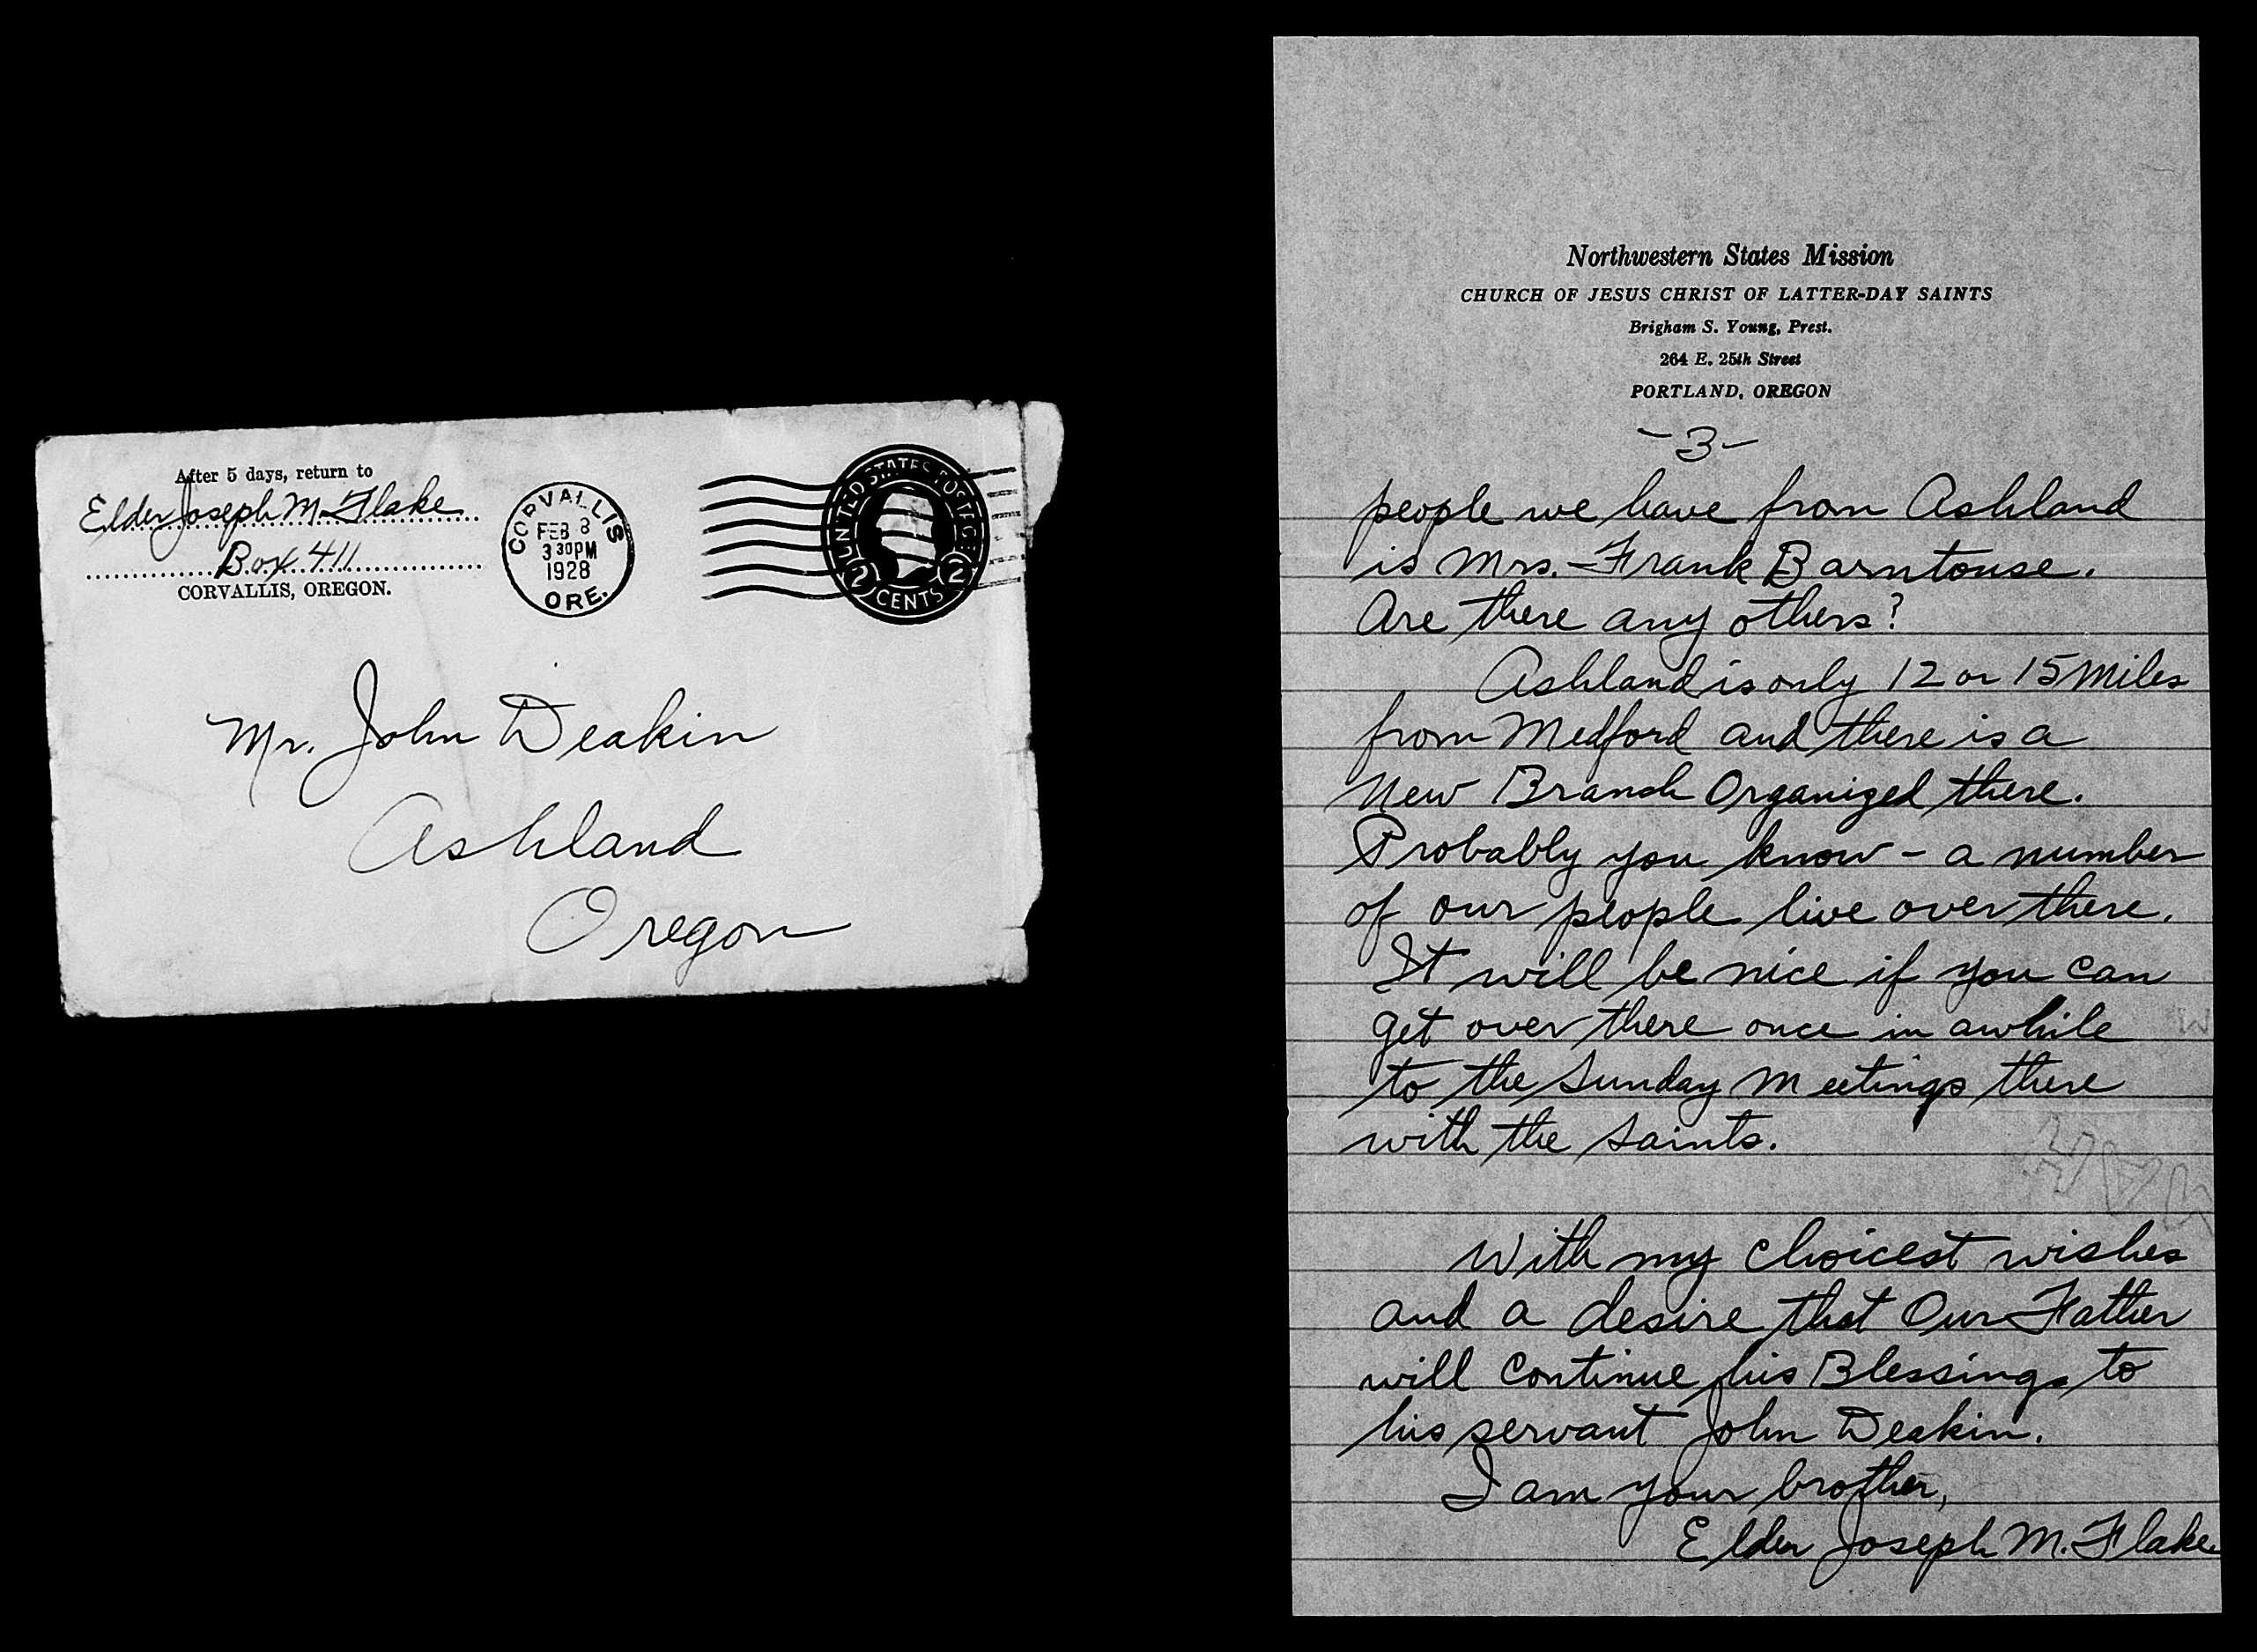 After 5 days, return to
Elder Joseph M. Flake
Box 411
CORVALLIS, OREGON.
CORVALLIS
FEB 8
3 30 PM
1928
ORE.
UNITED STATES POSTAGE
2 CENTS 2
Mr. John Deakin
Ashland
Oregon
Northwestern States Mission
CHURCH OF JESUS CHRIST OF LATTER-DAY SAINTS
Brigham S. Young, Prest.
264 E. 25th Street
PORTLAND, OREGON
-3-
people we have from Ashland
is Mrs. - Frank Barntouse.
Are there any others?
Ashland is only 12 or 15 Miles
from Medford and there is a
New Branch Organized there.
Probably you know - a number
of our people live over there.
It will be nice if you can
get over there once in awhile
to the Sunday Meetings there
with the Saints.
With my choicest wishes
and a desire that Our Father
will continue his Blessings to
his servant John Deakin.
I am your brother,
Elder Joseph M. Flake.